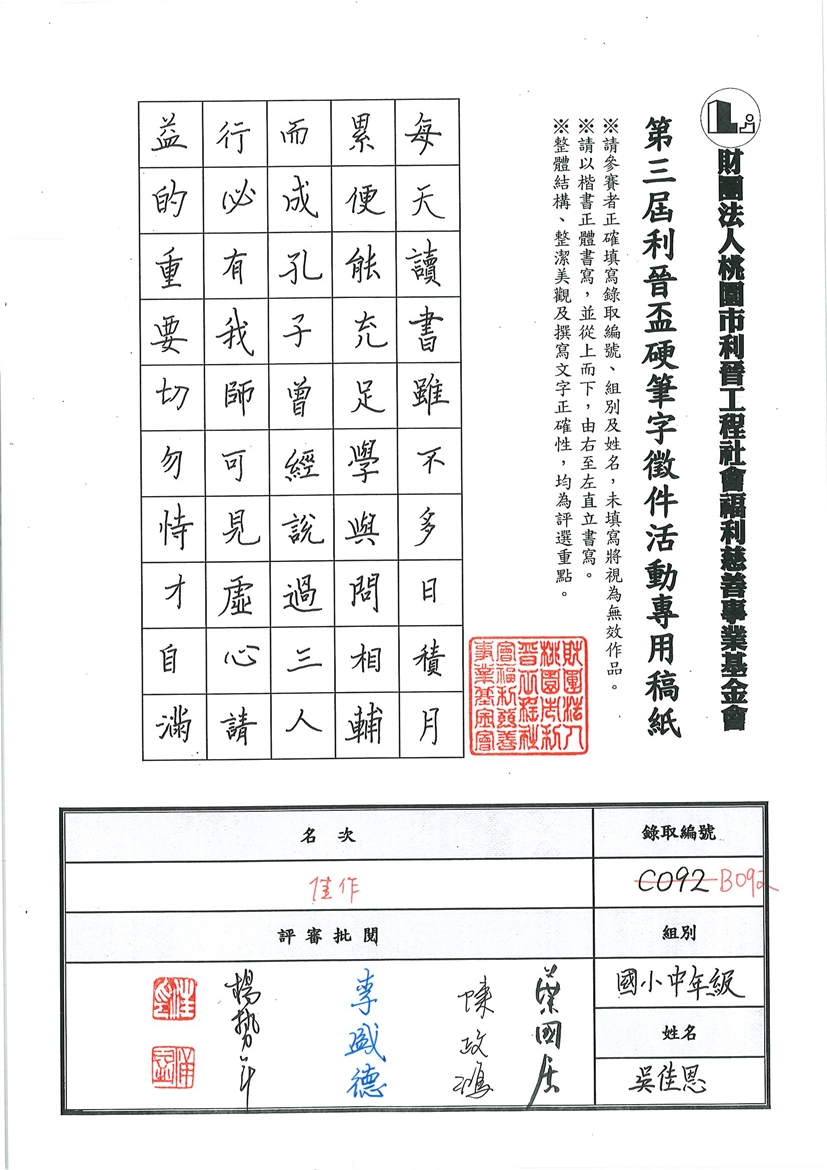 財團法人桃園市利晉工程社會福利慈善事業基金會
第三屆利晉盃硬筆字徵件活動專用稿紙
※請參賽者正確填寫錄取編號、組別及姓名，未填寫將視為無效作品。
※請以楷書正體書寫，並從上而下，由右至左直立書寫。
※整體結構、整潔美觀及撰寫文字正確性，均為評選重點。
每天讀書雖不多日積月
累便能充足學與問相輔
而成孔子曾經說過三人
行必有我師可見虛心請
益的重要切勿恃才自滿
財團法人
桃園市利
晉工程社
會福利慈善
事業基金會
錄取編號
C092 B092
組別
國小中年級
姓名
吳佳恩
名次
佳作
評審批閱
葉國居
陳政鴻
李盛德
楊勢年